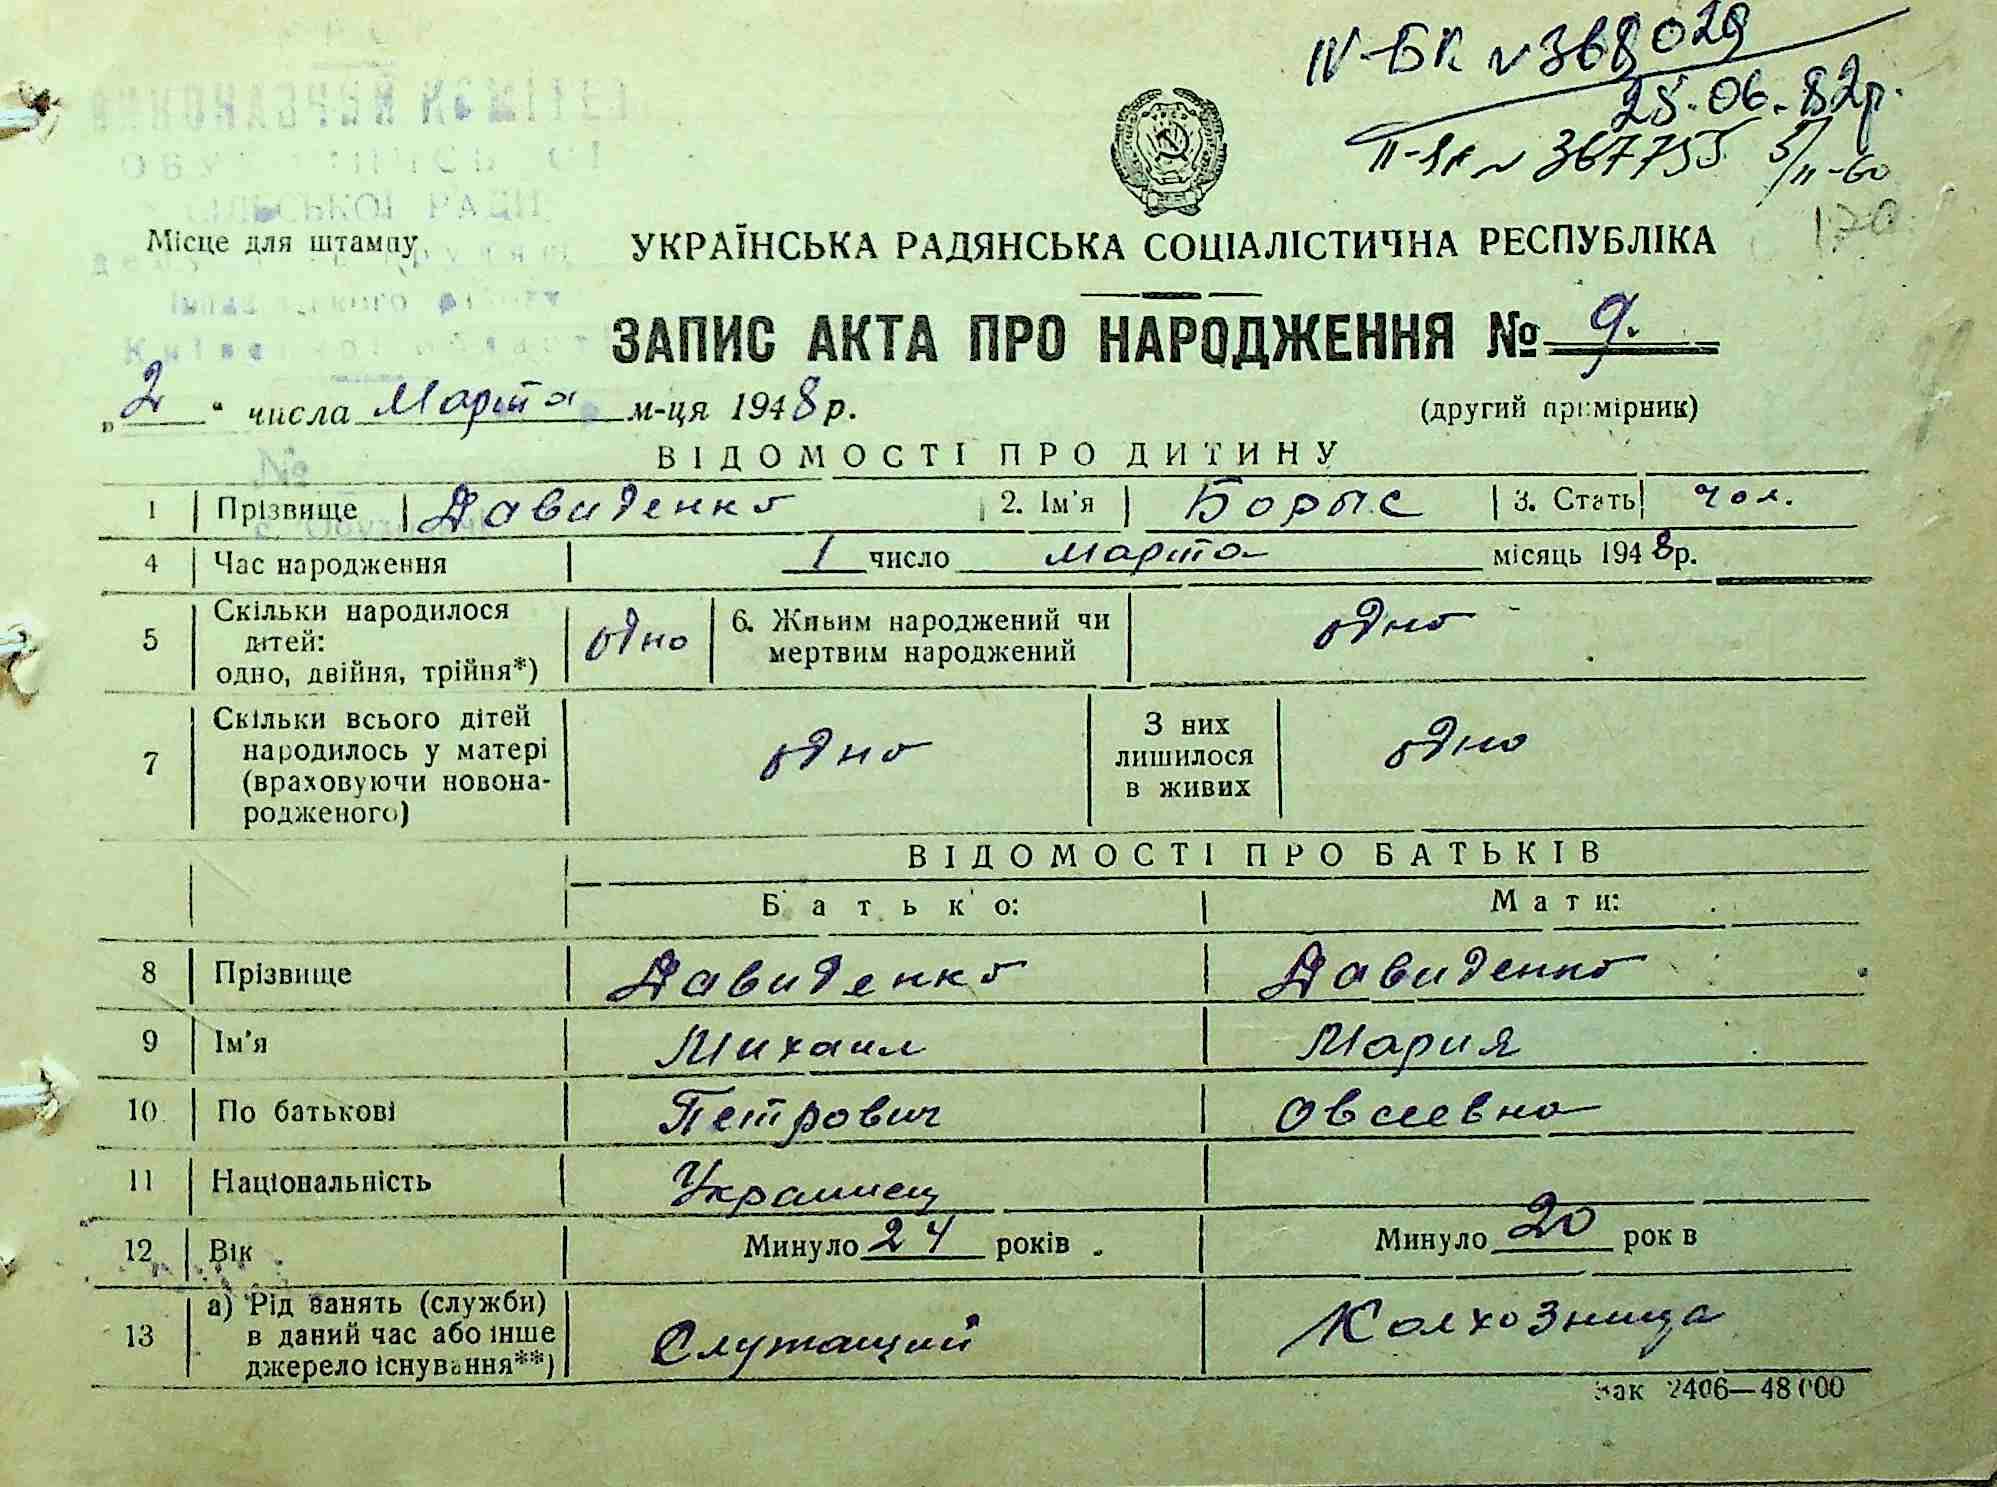 IV-БК № 368029
25.06.82р.
II-ЯК № 367755 5/II-60
170
Місце для штампу
УКРАЇНСЬКА РАДЯНСЬКА СОЦІАЛІСТИЧНА РЕСПУБЛІКА
ЗАПИС АКТА ПРО НАРОДЖЕННЯ № 9.
„2“ числа Марта м-ця 1948 р.
(другий примірник)
ВІДОМОСТІ ПРО ДИТИНУ
1 Прізвище Давиденко 2. Ім'я Борыс 3. Стать чол.
4 Час народження 1 число марта місяць 1948 р.
5 Скільки народилося дітей: одно, двійня, трійня*) одно 6. Живим народжений чи мертвим народжений одно
7 Скільки всього дітей народилось у матері (враховуючи новонародженого) одно З них лишилося в живих одно
ВІДОМОСТІ ПРО БАТЬКІВ
Батько: Мати:
8 Прізвище Давиденко Давиденко
9 Ім'я Михаил Мария
10 По батькові Петрович Овсеевна
11 Національність Украинец
12 Вік Минуло 24 років Минуло 20 рок в
13 а) Рід занять (служби) в даний час або інше джерело існування**) Служащий Колхозница
Зак 2406—48000